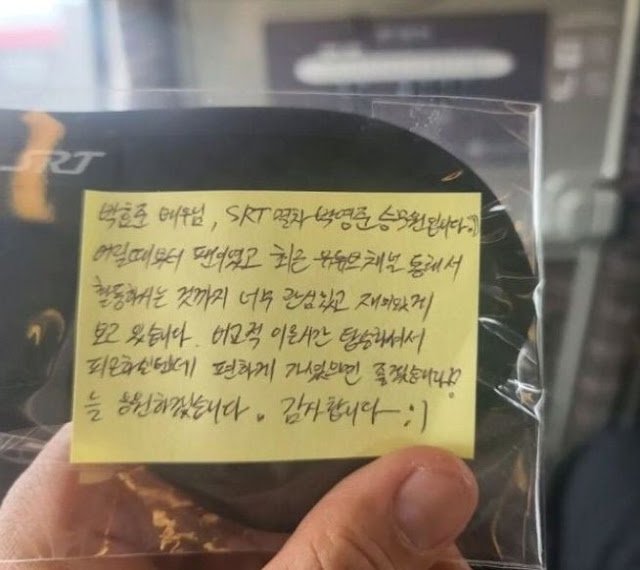 SRT
박효준 배우님, SRT 열차 박영준 승무원입니다 :)
어릴때부터 팬이었고 최근 유튜브채널 통해서
활동하시는 것까지 너무 관심있고 재미있게
보고 있습니다. 비교적 이른시간 탑승하셔서
피곤하실텐데 편하게 가셨으면 좋겠습니다!?
늘 응원하겠습니다. 감사합니다 :)